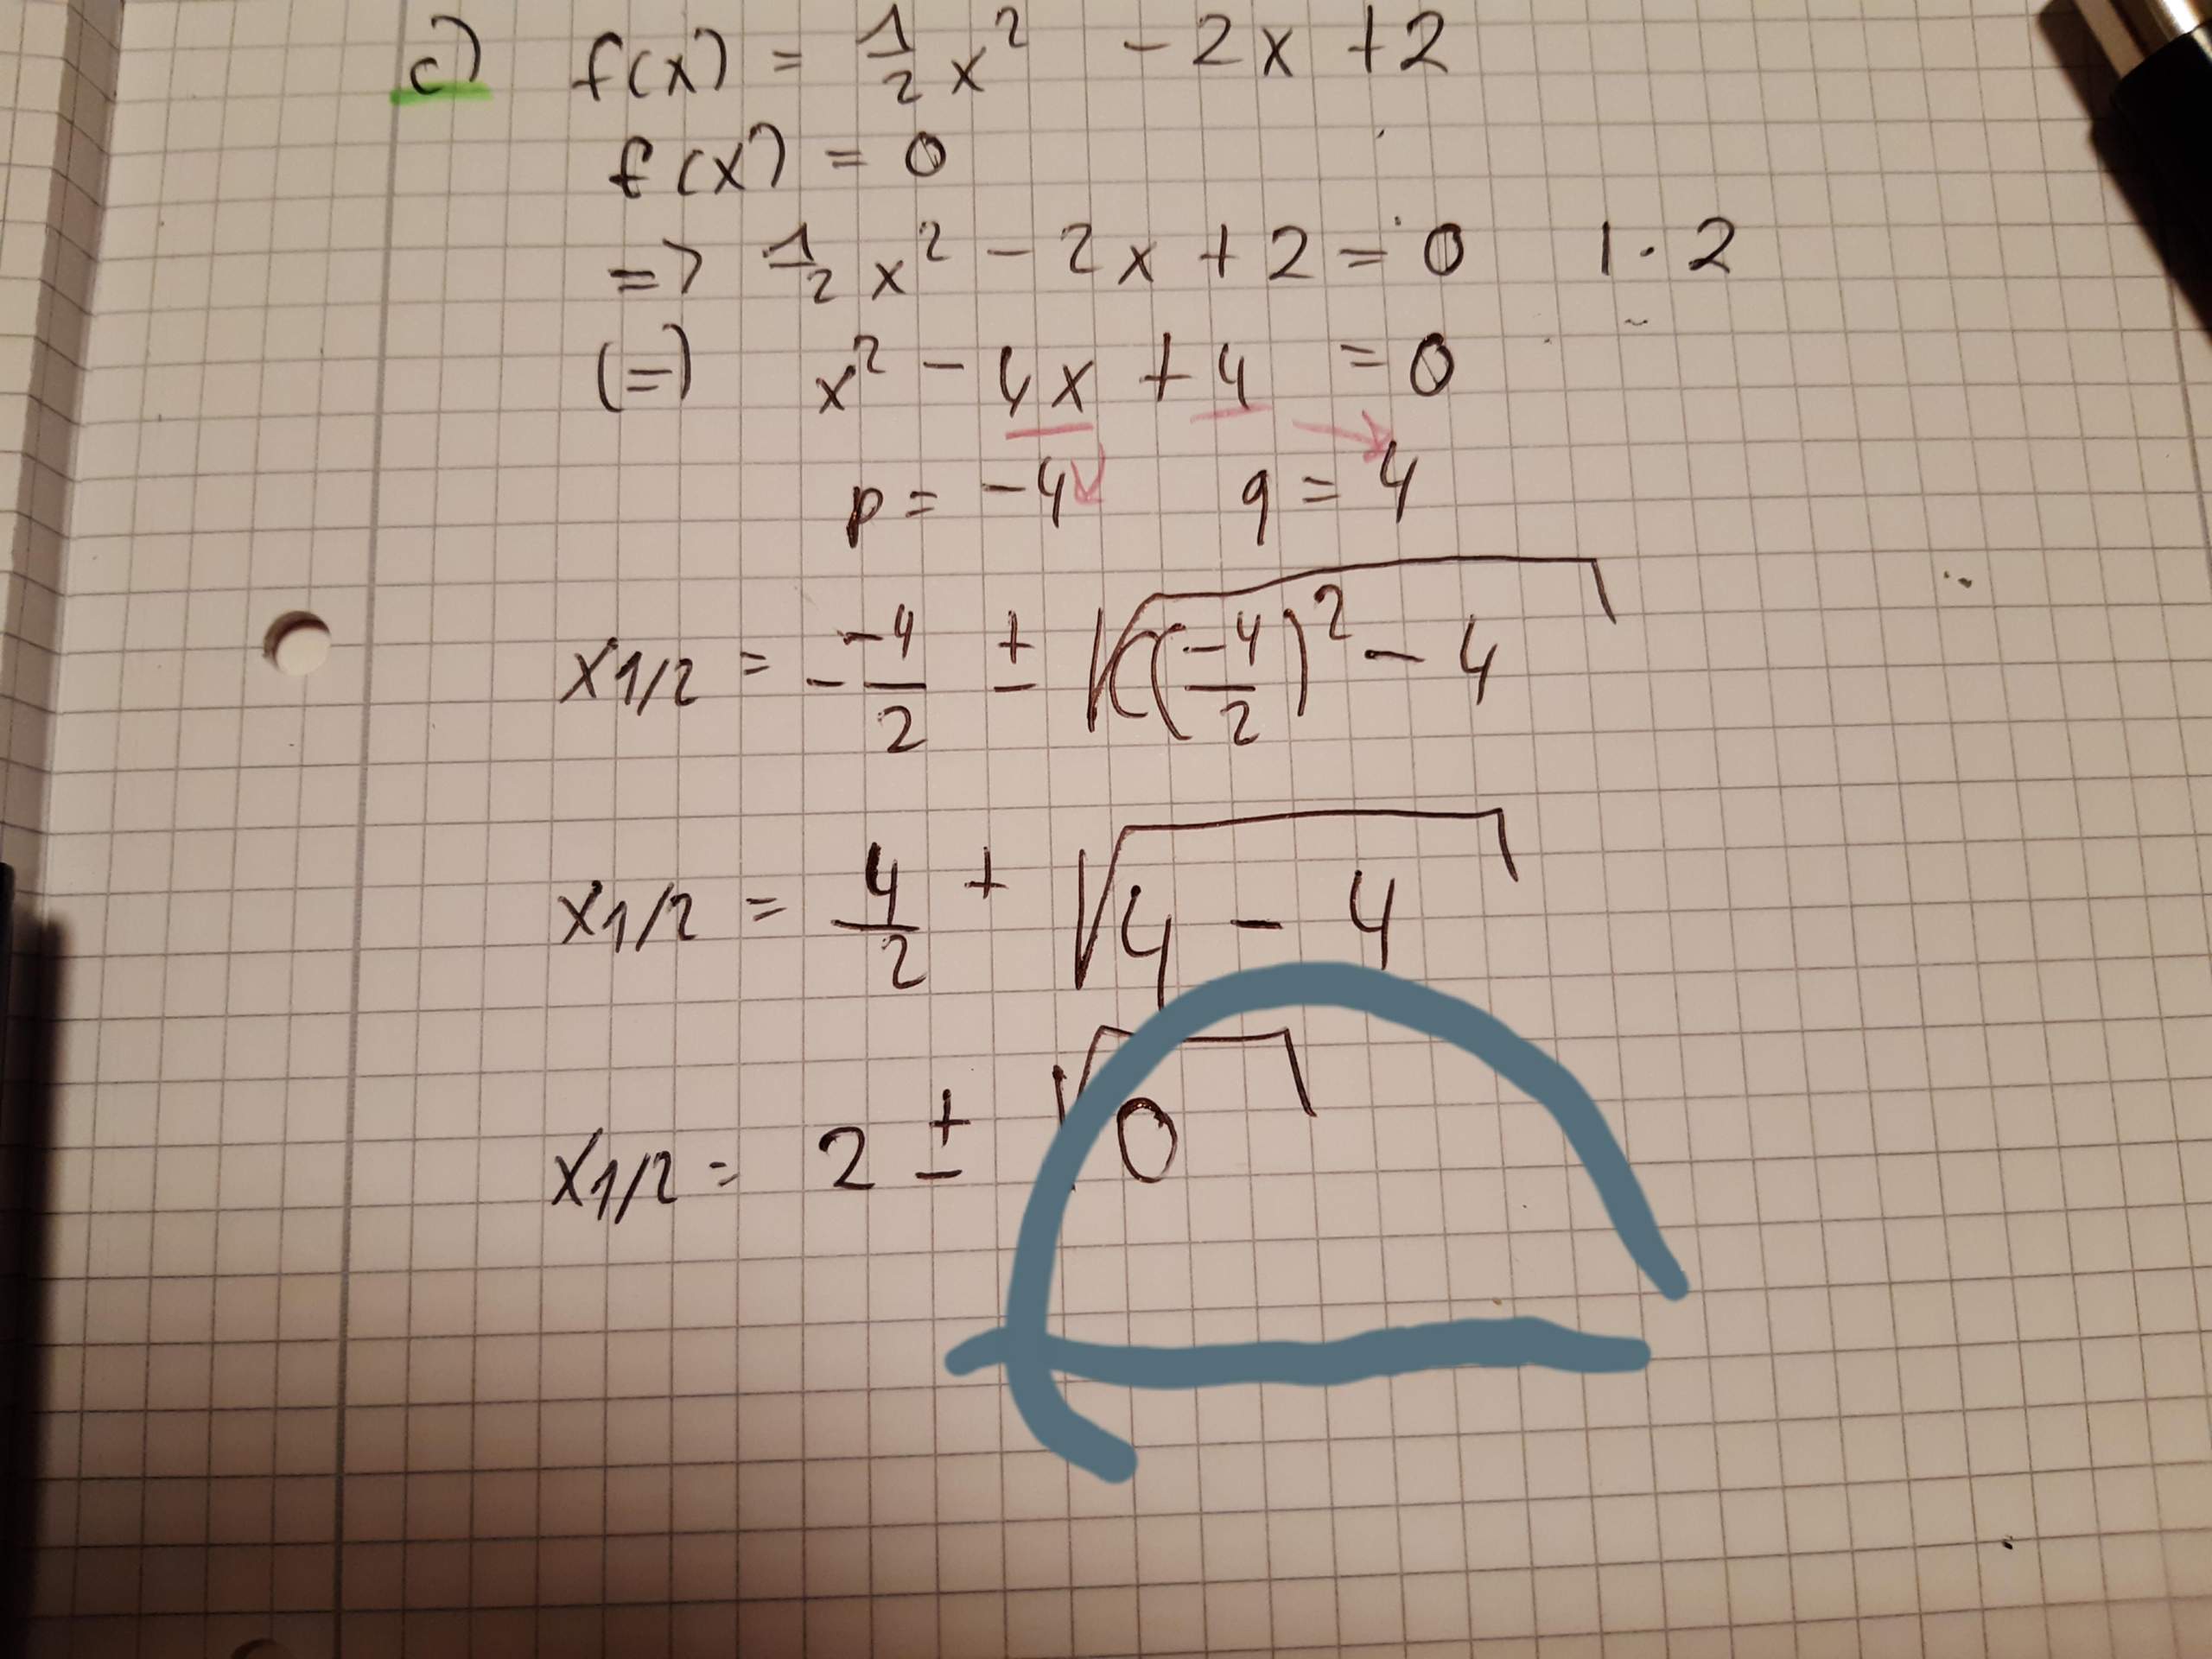 c) f(x) = 1/2 x² - 2x + 2
f(x) = 0
=> 1/2 x² - 2x + 2 = 0 | · 2
(=) x² - 4x + 4 = 0
p = -4 q = 4
x1/2 = - -4/2 ± √((-4/2)² - 4
x1/2 = 4/2 + √4 - 4
x1/2 = 2 ± √0